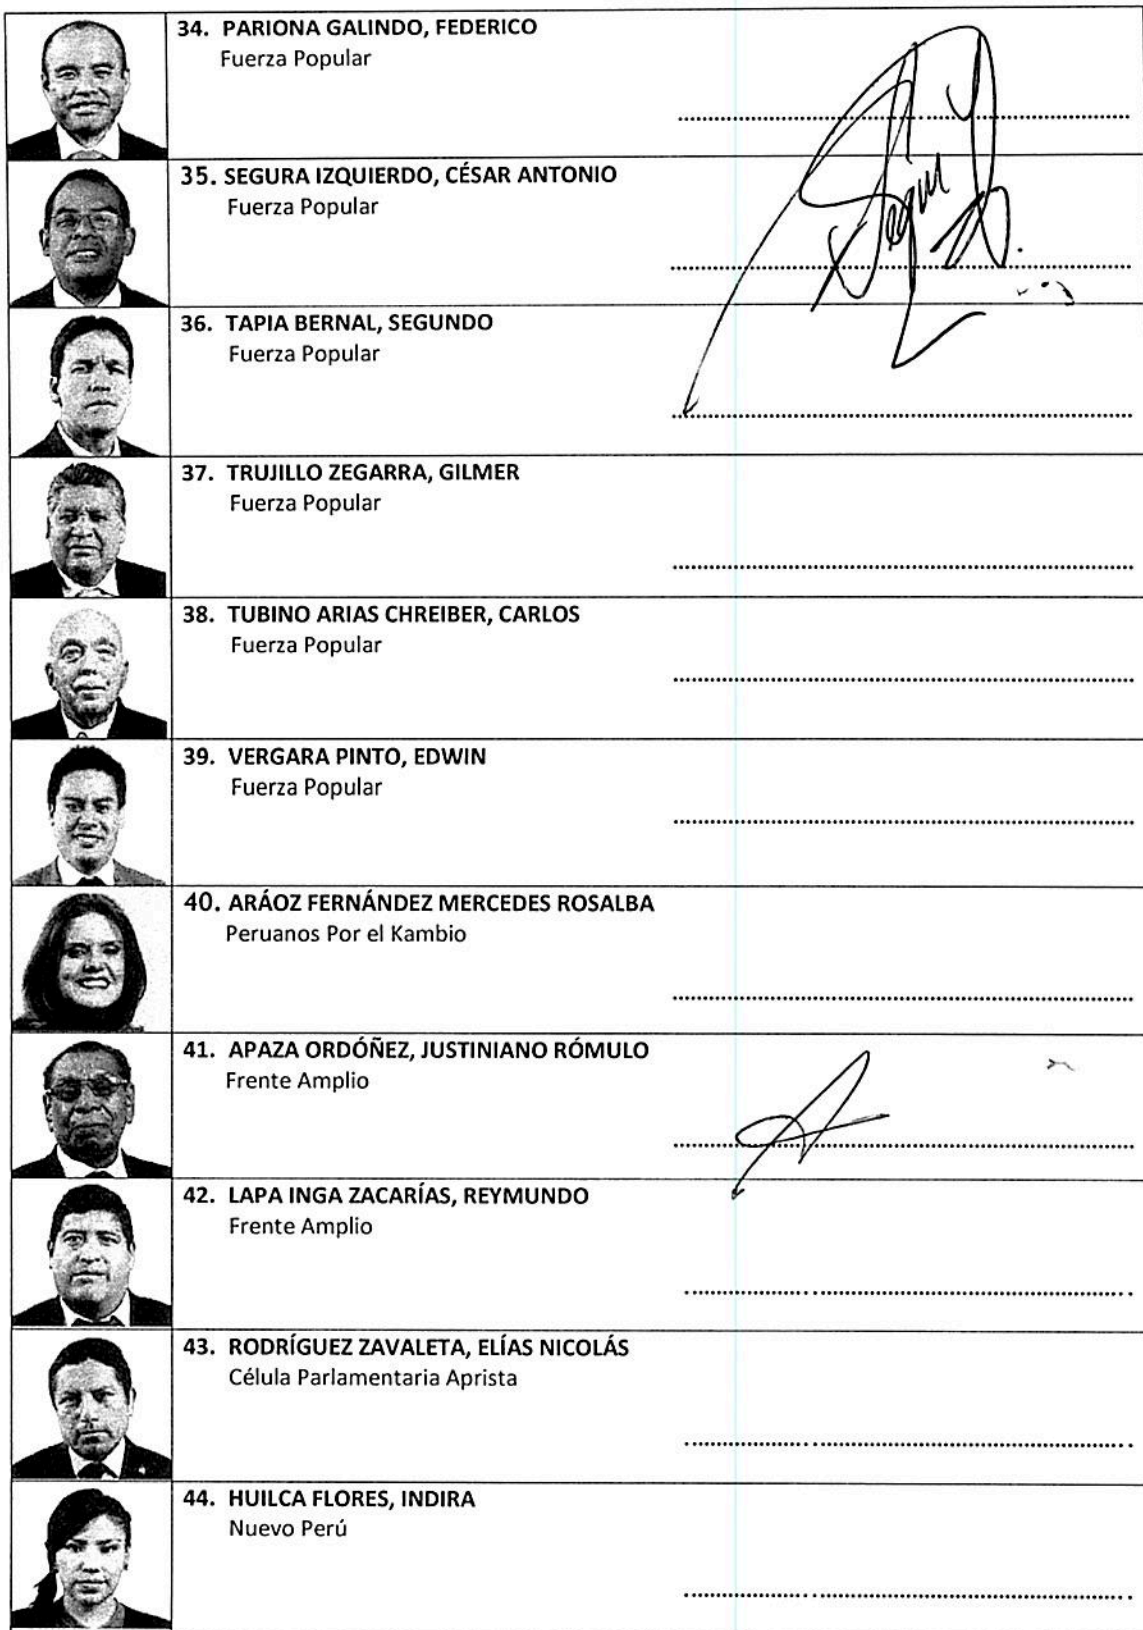 34. PARIONA GALINDO, FEDERICO
Fuerza Popular
35. SEGURA IZQUIERDO, CÉSAR ANTONIO
Fuerza Popular
36. TAPIA BERNAL, SEGUNDO
Fuerza Popular
37. TRUJILLO ZEGARRA, GILMER
Fuerza Popular
38. TUBINO ARIAS CHREIBER, CARLOS
Fuerza Popular
39. VERGARA PINTO, EDWIN
Fuerza Popular
40. ARÁOZ FERNÁNDEZ MERCEDES ROSALBA
Peruanos Por el Kambio
41. APAZA ORDÓÑEZ, JUSTINIANO RÓMULO
Frente Amplio
42. LAPA INGA ZACARÍAS, REYMUNDO
Frente Amplio
43. RODRÍGUEZ ZAVALETA, ELÍAS NICOLÁS
Célula Parlamentaria Aprista
44. HUILCA FLORES, INDIRA
Nuevo Perú